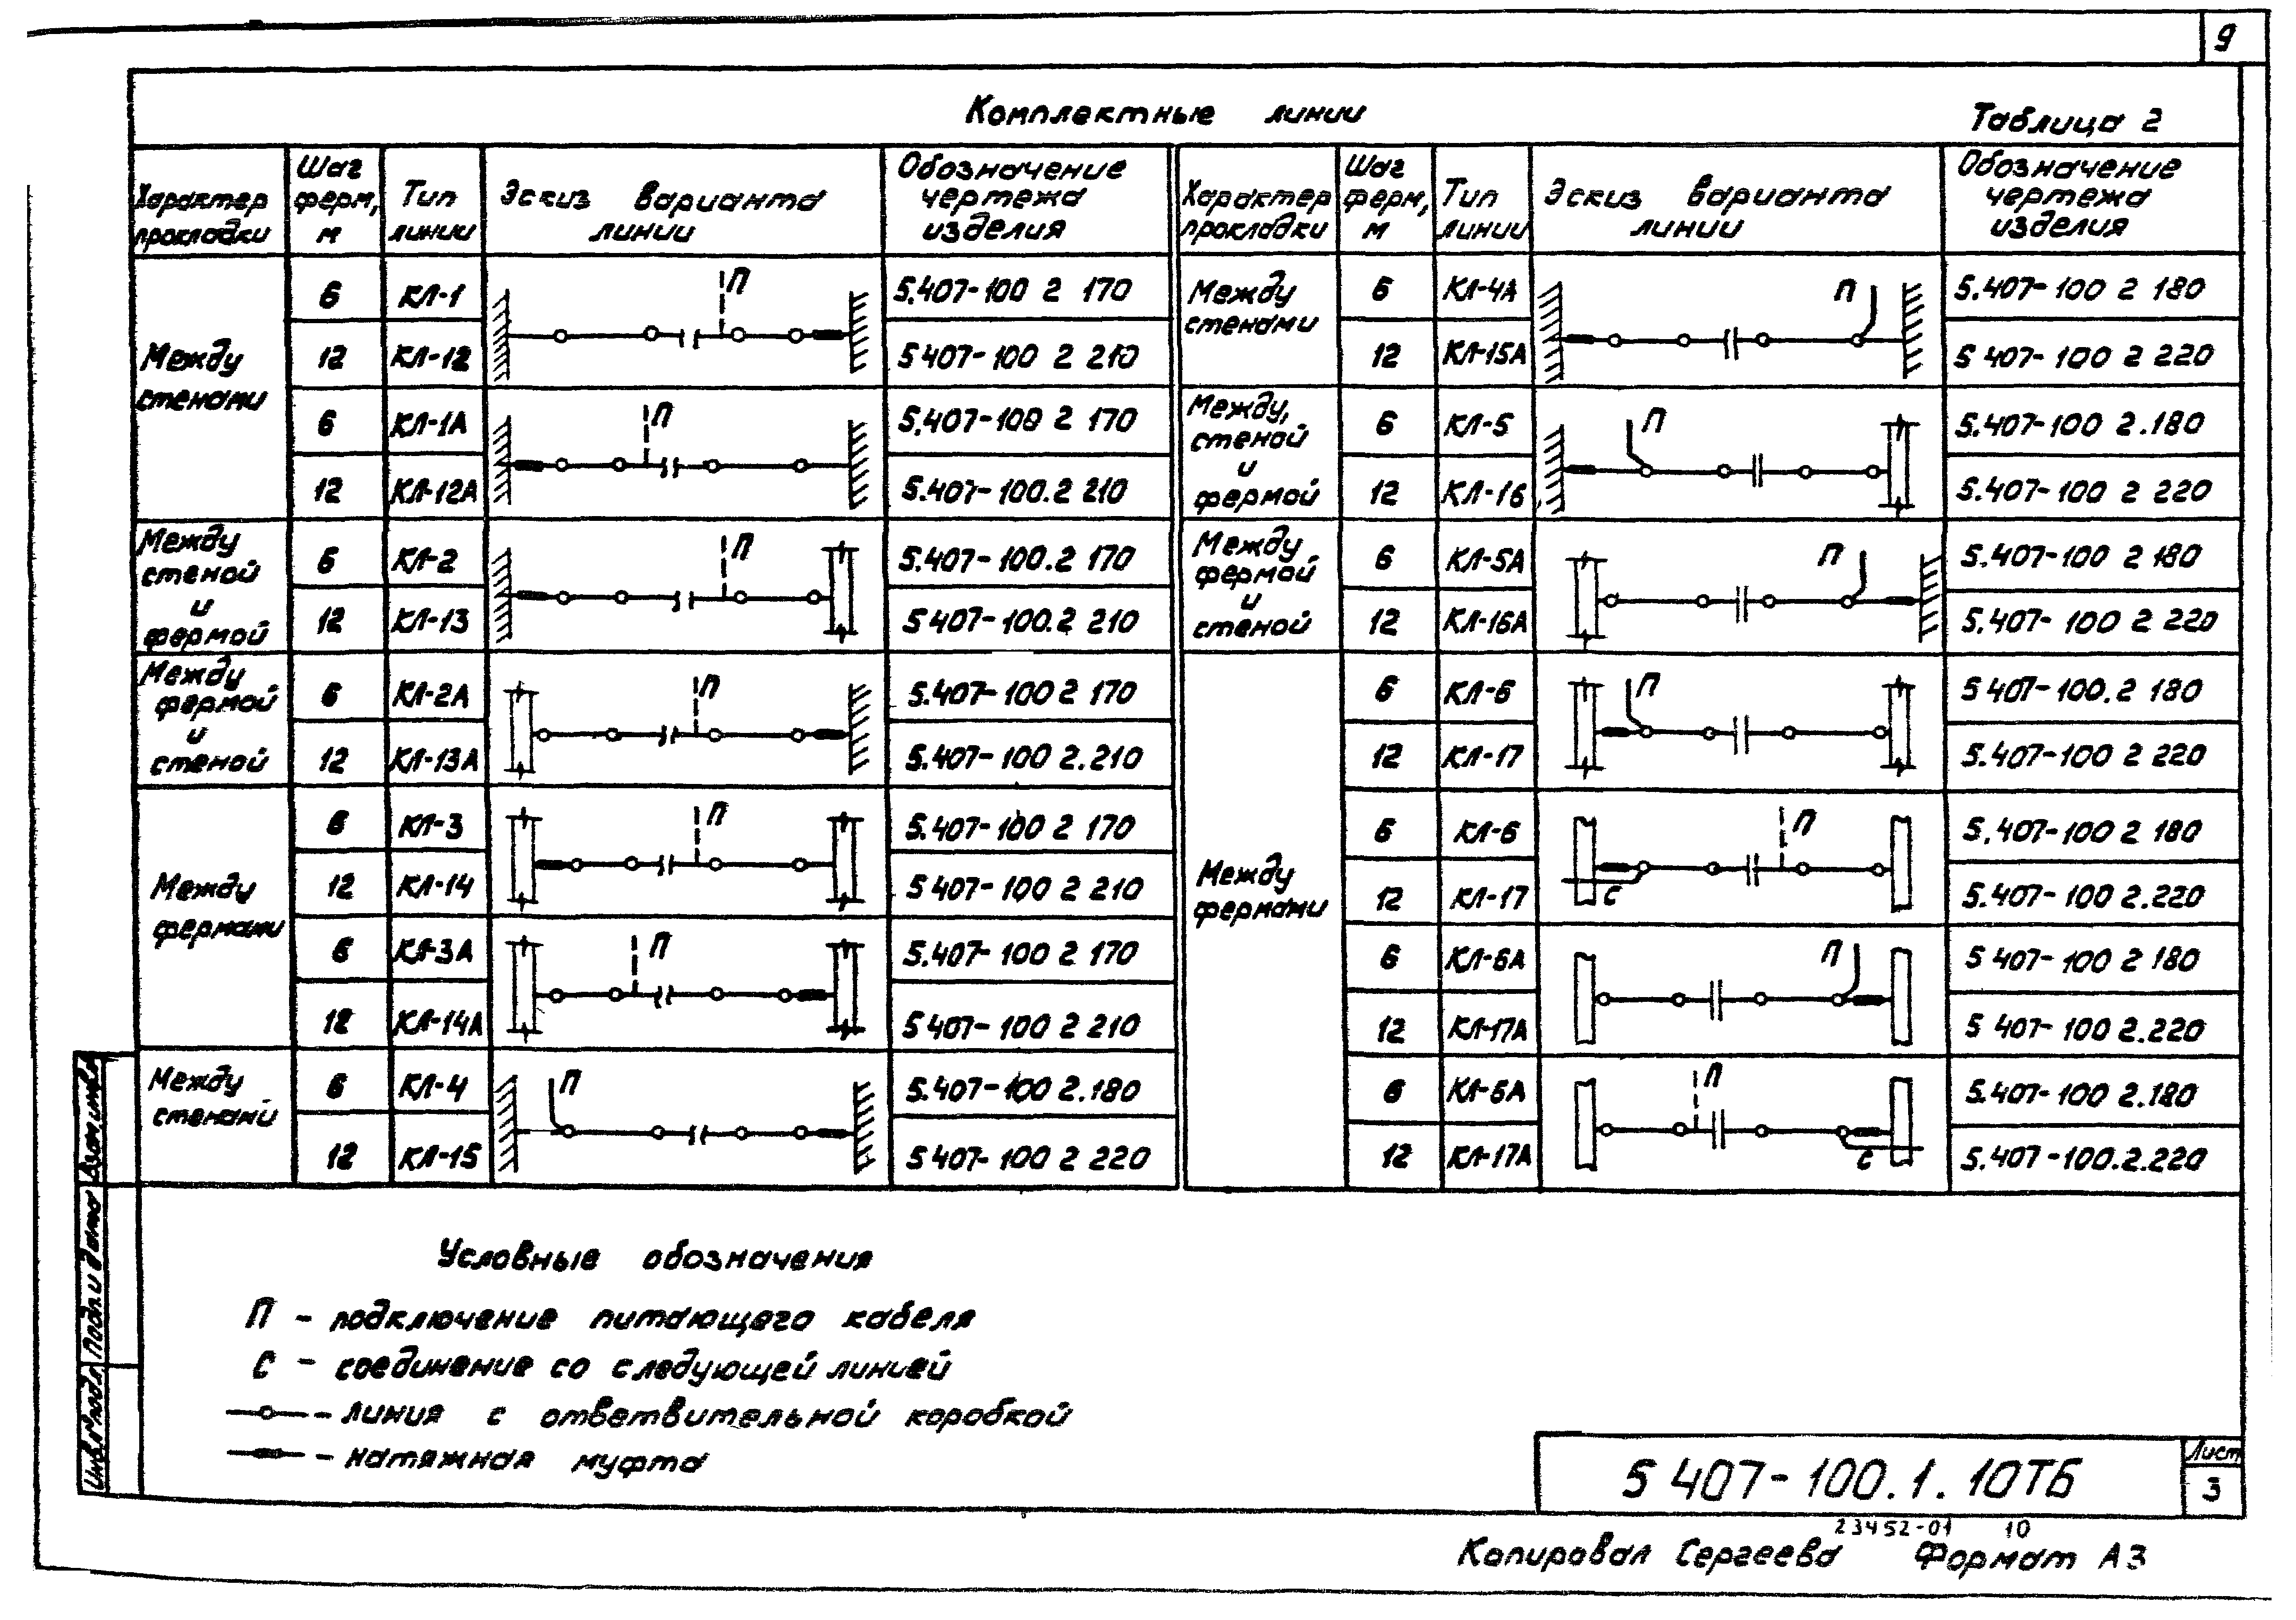 9
Комплектные линии
Таблица 2
Характер прокладки
Шаг ферм, м
Тип линии
Эскиз варианта линии
Обозначение чертежа изделия
Между стенами
6 КЛ-1 П 5.407-100 2 170
12 КЛ-12 5 407-100 2 210
6 КЛ-1А П 5.407-100 2 170
12 КЛ-12А 5.407-100.2 210
Между стеной и фермой
6 КЛ-2 П 5.407-100.2 170
12 КЛ-13 5 407-100.2 210
Между фермой и стеной
6 КЛ-2А П 5.407-100 2 170
12 КЛ-13А 5.407-100 2.210
Между фермами
6 КЛ-3 П 5.407-100 2 170
12 КЛ-14 5 407-100 2 210
6 КЛ-3А П 5.407-100 2 170
12 КЛ-14А 5 407-100 2 210
Между стенами
6 КЛ-4 П 5.407-100 2.180
12 КЛ-15 5 407-100 2 220
Характер прокладки
Шаг ферм, м
Тип линии
Эскиз варианта линии
Обозначение чертежа изделия
Между стенами
6 КЛ-4А П 5.407-100 2 180
12 КЛ-15А 5 407-100 2 220
Между, стеной и фермой
6 КЛ-5 П 5.407-100 2.180
12 КЛ-16 5.407-100 2 220
Между фермой и стеной
6 КЛ-5А П 5.407-100 2 180
12 КЛ-16А 5.407-100 2 220
Между фермами
6 КЛ-6 П 5 407-100.2 180
12 КЛ-17 5.407-100 2 220
6 КЛ-6 П 5.407-100 2 180
12 КЛ-17 С 5.407-100 2.220
6 КЛ-6А П 5 407-100 2 180
12 КЛ-17А 5 407-100 2.220
6 КЛ-6А П 5.407-100 2.180
12 КЛ-17А С 5.407-100.2.220
Условные обозначения
П - подключение питающего кабеля
С - соединение со следующей линией
- линия с ответвительной коробкой
- натяжная муфта
Взам.инв.№
Подп. и дата
Инв.№ подл.
5 407-100.1.10ТБ
Лист
3
23452-01 10
Копировал Сергеева Формат А3